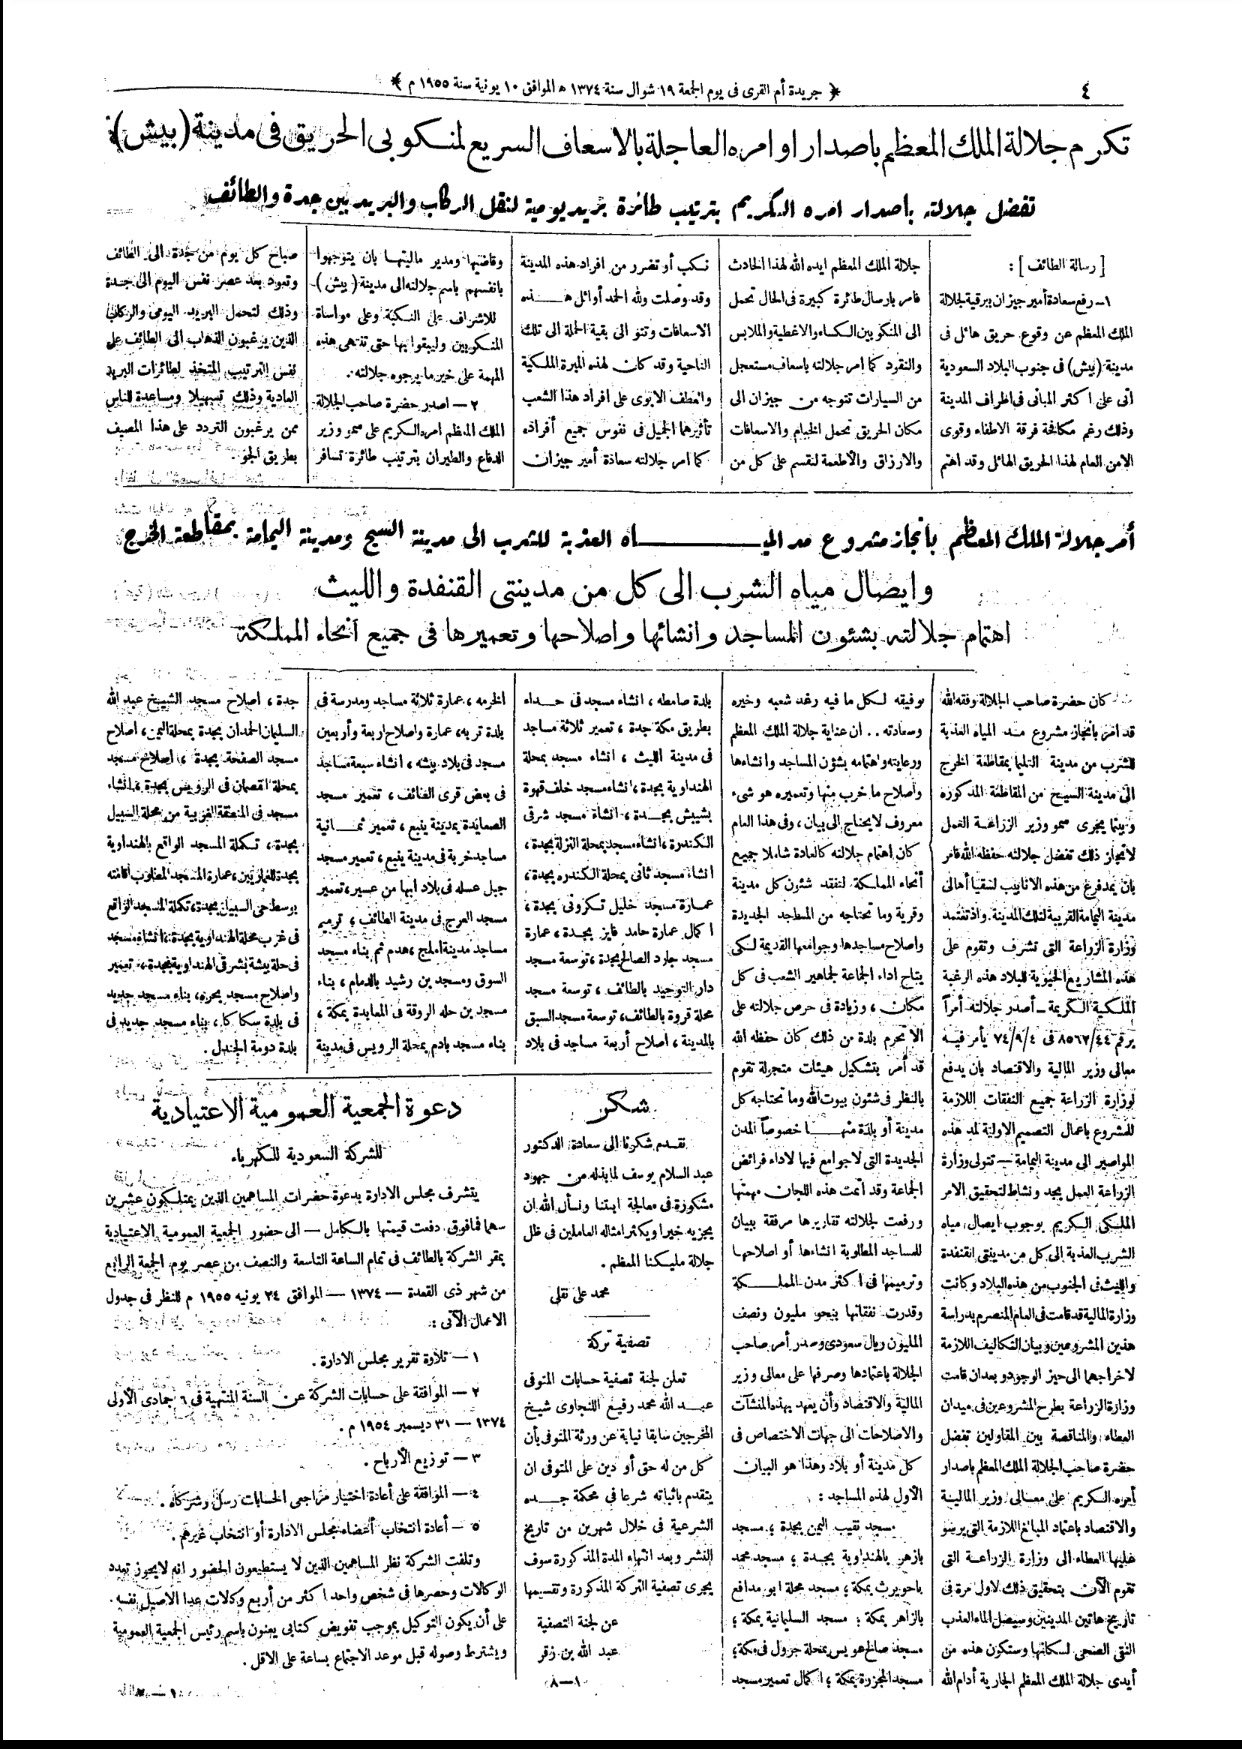 ٤
﴿ جريدة أم القرى فى يوم الجمعة ١٩ شوال سنة ١٣٧٤ ه الموافق ١٠ يونية سنة ١٩٥٥ م ﴾
تكرم جلالة الملك المعظم باصدار اوامره العاجلة بالاسعاف السريع لمنكوبى الحريق فى مدينة (بيش)
تفضل جلالته باصدار امره الكريم بترتيب طائرة بريد يومية لنقل الركاب والبريد بين جدة والطائف
[ رسالة الطائف ] :
١- رفع سعادة أمير جيزان ببرقية لجلالة
الملك المعظم عن وقوع حريق هائل فى
مدينة (بيش) فى جنوب البلاد السعودية
أتى على اكثر المبانى فى اطراف المدينة
وذلك رغم مكافحة فرقة الاطفاء وقوى
الامن العام لهذا الحريق الهائل وقد اهتم
جلالة الملك المعظم ايده الله لهذا الحادث
فامر بارسال طائرة كبيرة فى الحال تحمل
الى المنكوبين الكساء والاغطية والملابس
والنقود كما امر جلالته باسعاف مستعجل
من السيارات تتوجه من جيزان الى
مكان الحريق تحمل الخيام والاسعافات
والارزاق والاطعمة لتقسم على كل من
نكب أو تضرر من افراد هذه المدينة
وقد وصلت ولله الحمد أوائل هذه
الاسعافات وتتوالى بقية الحملة الى تلك
الناحية وقد كان لهذه المبرة الملكية
والعطف الابوى على افراد هذا الشعب
تأثيرهما الجميل فى نفوس جميع أفراده
كما امر جلالته سعادة أمير جيزان
وقاضيها ومدير ماليتها بان يتوجهوا
بانفسهم باسم جلالته الى مدينة ( بيش )
للاشراف على النكبة وعلى مواساة
المنكوبين وليبقوا بها حتى تنتهى هذه
المهمة على خير ما يرجوه جلالته .
٢ — اصدر حضرة صاحب الجلالة
الملك المعظم امره الكريم على سمو وزير
الدفاع والطيران بترتيب طائرة تسافر
صباح كل يوم من جدة الى الطائف
وتعود بعد عصر نفس اليوم الى جدة
وذلك لتحمل البريد اليومى والركاب
الذين يرغبون الذهاب الى الطائف على
نفس الترتيب المتخذ لطائرات البريد
العادية وذلك تسهيلا ومساعدة للناس
ممن يرغبون التردد على هذا المصيف
بطريق الجو .
أمر جلالة الملك المعظم بانجاز مشروع مد المياه العذبة للشرب الى مدينة السيح ومدينة اليمامة بمقاطعة الخرج
وايصال مياه الشرب الى كل من مدينتى القنفدة والليث
اهتمام جلالته بشئون المساجد وانشائها واصلاحها وتعميرها فى جميع أنحاء المملكة
كان حضرة صاحب الجلالة وفقه الله
قد امر بانجاز مشروع مد المياه العذبة
للشرب من مدينة بمقاطعة الخرج
الى مدينة السيح من المقاطعة المذكورة
وبينما يجرى سمو وزير الزراعة العمل
لانجاز ذلك تفضل جلالته حفظه الله فامر
بان يمد فرع من هذه الانابيب لسقيا أهالى
مدينة اليمامة القريبة لتلك المدينة واذ تعتمد
وزارة الزراعة التى تشرف وتقوم على
هذه المشاريع الحيوية للبلاد هذه الرغبة
الملكية الكريمة — أصدر جلالته أمراً
برقم ٨٥٦٧/٤٤ فى ٧٤/٩/٤ يأمر فيه
معالى وزير المالية والاقتصاد بان يدفع
لوزارة الزراعة جميع النفقات اللازمة
للمشروع باعمال التصميم الاولية لمد هذه
المواصير الى مدينة اليمامة — تتولى وزارة
الزراعة العمل بجد ونشاط لتحقيق الامر
الملكى الكريم بوجوب ايصال مياه
الشرب العذبة الى كل من مدينتى القنفدة
والليث فى الجنوب من هذه البلاد وكانت
وزارة المالية قد قامت فى العام المنصرم بدراسة
هذين المشروعين وبيان التكاليف اللازمة
لاخراجهما الى حيز الوجود وبعد ان قامت
وزارة الزراعة بطرح المشروعين فى ميدان
العطاء والمناقصة بين المقاولين تفضل
حضرة صاحب الجلالة الملك المعظم باصدار
أمره الكريم على معالى وزير المالية
والاقتصاد باعتماد المبالغ اللازمة التى يرسو
عليها العطاء الى وزارة الزراعة التى
تقوم الآن بتحقيق ذلك لاول مرة فى
تاريخ هاتين المدينتين وسيصل الماء العذب
النقى الصحى لسكانها وستكون هذه من
أيدى جلالة الملك المعظم الجارية أدام الله
توفيقه لكل ما فيه رغد شعبه وخيره
وسعادته .. ان عناية جلالة الملك المعظم
ورعايته واهتمامه بشؤن المساجد وانشاءها
واصلاح ما خرب منها وتعميره هو شىء
معروف لا يحتاج الى بيان ، وفى هذا العام
كان اهتمام جلالته كالعادة شاملا جميع
أنحاء المملكة لتفقد شئون كل مدينة
وقرية وما تحتاجه من المساجد الجديدة
واصلاح مساجدها وجوامعها القديمة لكى
يتاح اداء الجماعة لجماهير الشعب فى كل
مكان ، وزيادة فى حرص جلالته على
الا تحرم بلدة من ذلك كان حفظه الله
قد أمر بتشكيل هيئات متجولة تقوم
بالنظر فى شئون بيوت الله وما تحتاجه كل
مدينة أو بلدة منها خصوصاً المدن
الجديدة التى لا جوامع فيها لاداء فرائض
الجماعة وقد أتمت هذه اللجان مهمتها
ورفعت لجلالته تقاريرها مرفقة ببيان
للمساجد المطلوبة انشاءها أو اصلاحها
وترميمها فى اكثر مدن المملكة
وقدرت نفقاتها بنحو مليون ونصف
المليون ريال سعودى وصدر أمر صاحب
الجلالة باعتمادها وصرفها على معالى وزير
المالية والاقتصاد وأن يعهد بهذه المنشآت
والاصلاحات الى جهات الاختصاص فى
كل مدينة أو بلاد وهذا هو البيان
الأول لهذه المساجد :
مسجد نقيب اليمن بجدة ؛ مسجد
بازهر بالهنداوية بجدة ؛ مسجد محمد
باحويرث بمكة ؛ مسجد محلة ابو مدافع
بالزاهر بمكة ؛ مسجد السليمانية بمكة ؛
مسجد صالح هويس بمحلة جرول فى مكة ؛
مسجد المجزرة بمكة ؛ اكمال تعمير مسجد
بلدة صامطه ، انشاء مسجد فى حداء
بطريق مكة جدة ، تعمير ثلاثة مساجد
فى مدينة الليث ، انشاء مسجد بمحلة
الهنداوية بجدة ، انشاء مسجد خلف قهوة
بشيبش بجدة ، انشاء مسجد شرقى
الكندرة ، انشاء مسجد بمحلة النزلة بجدة ،
انشاء مسجد ثانى بمحلة الكندره بجدة ،
عمارة مسجد خليل تكرونى بجدة ،
اكمال عمارة حامد فايز بجدة ، عمارة
مسجد جارد الصالح بجدة ، توسعة مسجد
دار التوحيد بالطائف ، توسعة مسجد
محلة قروة بالطائف ، توسعة مسجد السبق
بالمدينة ، اصلاح أربعة مساجد فى بلاد
الخرمه ، عمارة ثلاثة مساجد ومدرسة فى
بلدة تربه ، عمارة واصلاح اربعة وأربعين
مسجد فى بلاد بيشه ، انشاء سبعة مساجد
فى بعض قرى الطائف ، تعمير مسجد
الصمايدة بمدينة ينبع ، تعمير ثمانية
مساجد خربة فى مدينة ينبع ، تعمير مسجد
جبل عسله فى بلاد ابها من عسير ، تعمير
مسجد العرج فى مدينة الطائف ، ترميم
مساجد مدينة املج ، هدم ثم بناء مسجد
السوق ومسجد بن رشيد بالدمام ، بناء
مسجد بن حله الروقة فى المعابدة بمكة ،
بناء مسجد بادم بمحلة الرويس فى مدينة
جدة ، اصلاح مسجد الشيخ عبد الله
السليمان الحمدان بجدة بمحلة اليمن ، اصلاح
مسجد الصفحة بجدة ، اصلاح مسجد
بمحلة القصمان فى الرويس بجدة ، انشاء
مسجد فى المنطقة الغربية من محلة السبيل
بجدة ، تكملة المسجد الواقع بالهنداوية
بجدة ، عمارة المسجد المطلوب اقامته
بوسط حى السبيل بجدة ، تكملة المسجد الواقع
فى غرب محلة الهنداوية بجدة ، انشاء مسجد
فى حلة بيشة بشرقى الهنداوية بجدة ، تعمير
واصلاح مسجد بحره ، بناء مسجد جديد
فى بلدة سكاكا ، بناء مسجد جديد فى
بلدة دومة الجندل .
شكر
نقدم شكرنا الى سعادة الدكتور
عبد السلام يوسف لما بذله من جهود
مشكورة فى معالجة ابنتنا ونسأل الله ان
يجزيه خيرا ويكثر امثاله العاملين فى ظل
جلالة مليكنا المعظم .
محمد على نقلى
تصفية تركة
تعلن لجنة تصفية حسابات المتوفى
عبد الله محمد رفيع اللنجاوى شيخ
المخرجين سابقا نيابة عن ورثة المتوفى بأن
كل من له حق أو دين على المتوفى ان
يتقدم باثباته شرعا فى محكمة جده
الشرعية فى خلال شهرين من تاريخ
النشر وبعد انتهاء المدة المذكورة سوف
يجرى تصفية التركة المذكورة وتقسيمها
عن لجنة التصفية
عبد الله بن زقر
١٠—٨
دعوة الجمعية العمومية الاعتيادية
للشركة السعودية للكهرباء
يتشرف مجلس الادارة بدعوة حضرات المساهمين الذين يمتلكون عشرين
سهما فما فوق دفعت قيمتها بالكامل — الى حضور الجمعية العمومية الاعتيادية
بمقر الشركة بالطائف فى تمام الساعة التاسعة والنصف من عصر يوم الجمعة الرابع
من شهر ذى القعدة — ١٣٧٤ — الموافق ٢٤ يونيه ١٩٥٥ م للنظر فى جدول
الاعمال الآتى :
١ — تلاوة تقرير مجلس الادارة .
٢ — الموافقة على حسابات الشركة عن السنة المنتهية فى ٦ جمادى الأولى
١٣٧٤ — ٣١ ديسمبر ١٩٥٤ م .
٣ — توزيع الأرباح .
٤ — الموافقة على أعادة اختيار مراجعى الحسابات رسل وشركاه .
٥ — أعادة انتخاب أعضاء مجلس الادارة أو انتخاب غيرهم .
وتلفت الشركة نظر المساهمين الذين لا يستطيعون الحضور انه لا يجوز تعدد
الوكالات وحصرها فى شخص واحد اكثر من أربع وكلات عدا الاصيل نفسه .
على أن يكون التوكيل بموجب تفويض كتابى يعنون باسم رئيس الجمعية العمومية
ويشترط وصوله قبل موعد الاجتماع بساعة على الاقل .